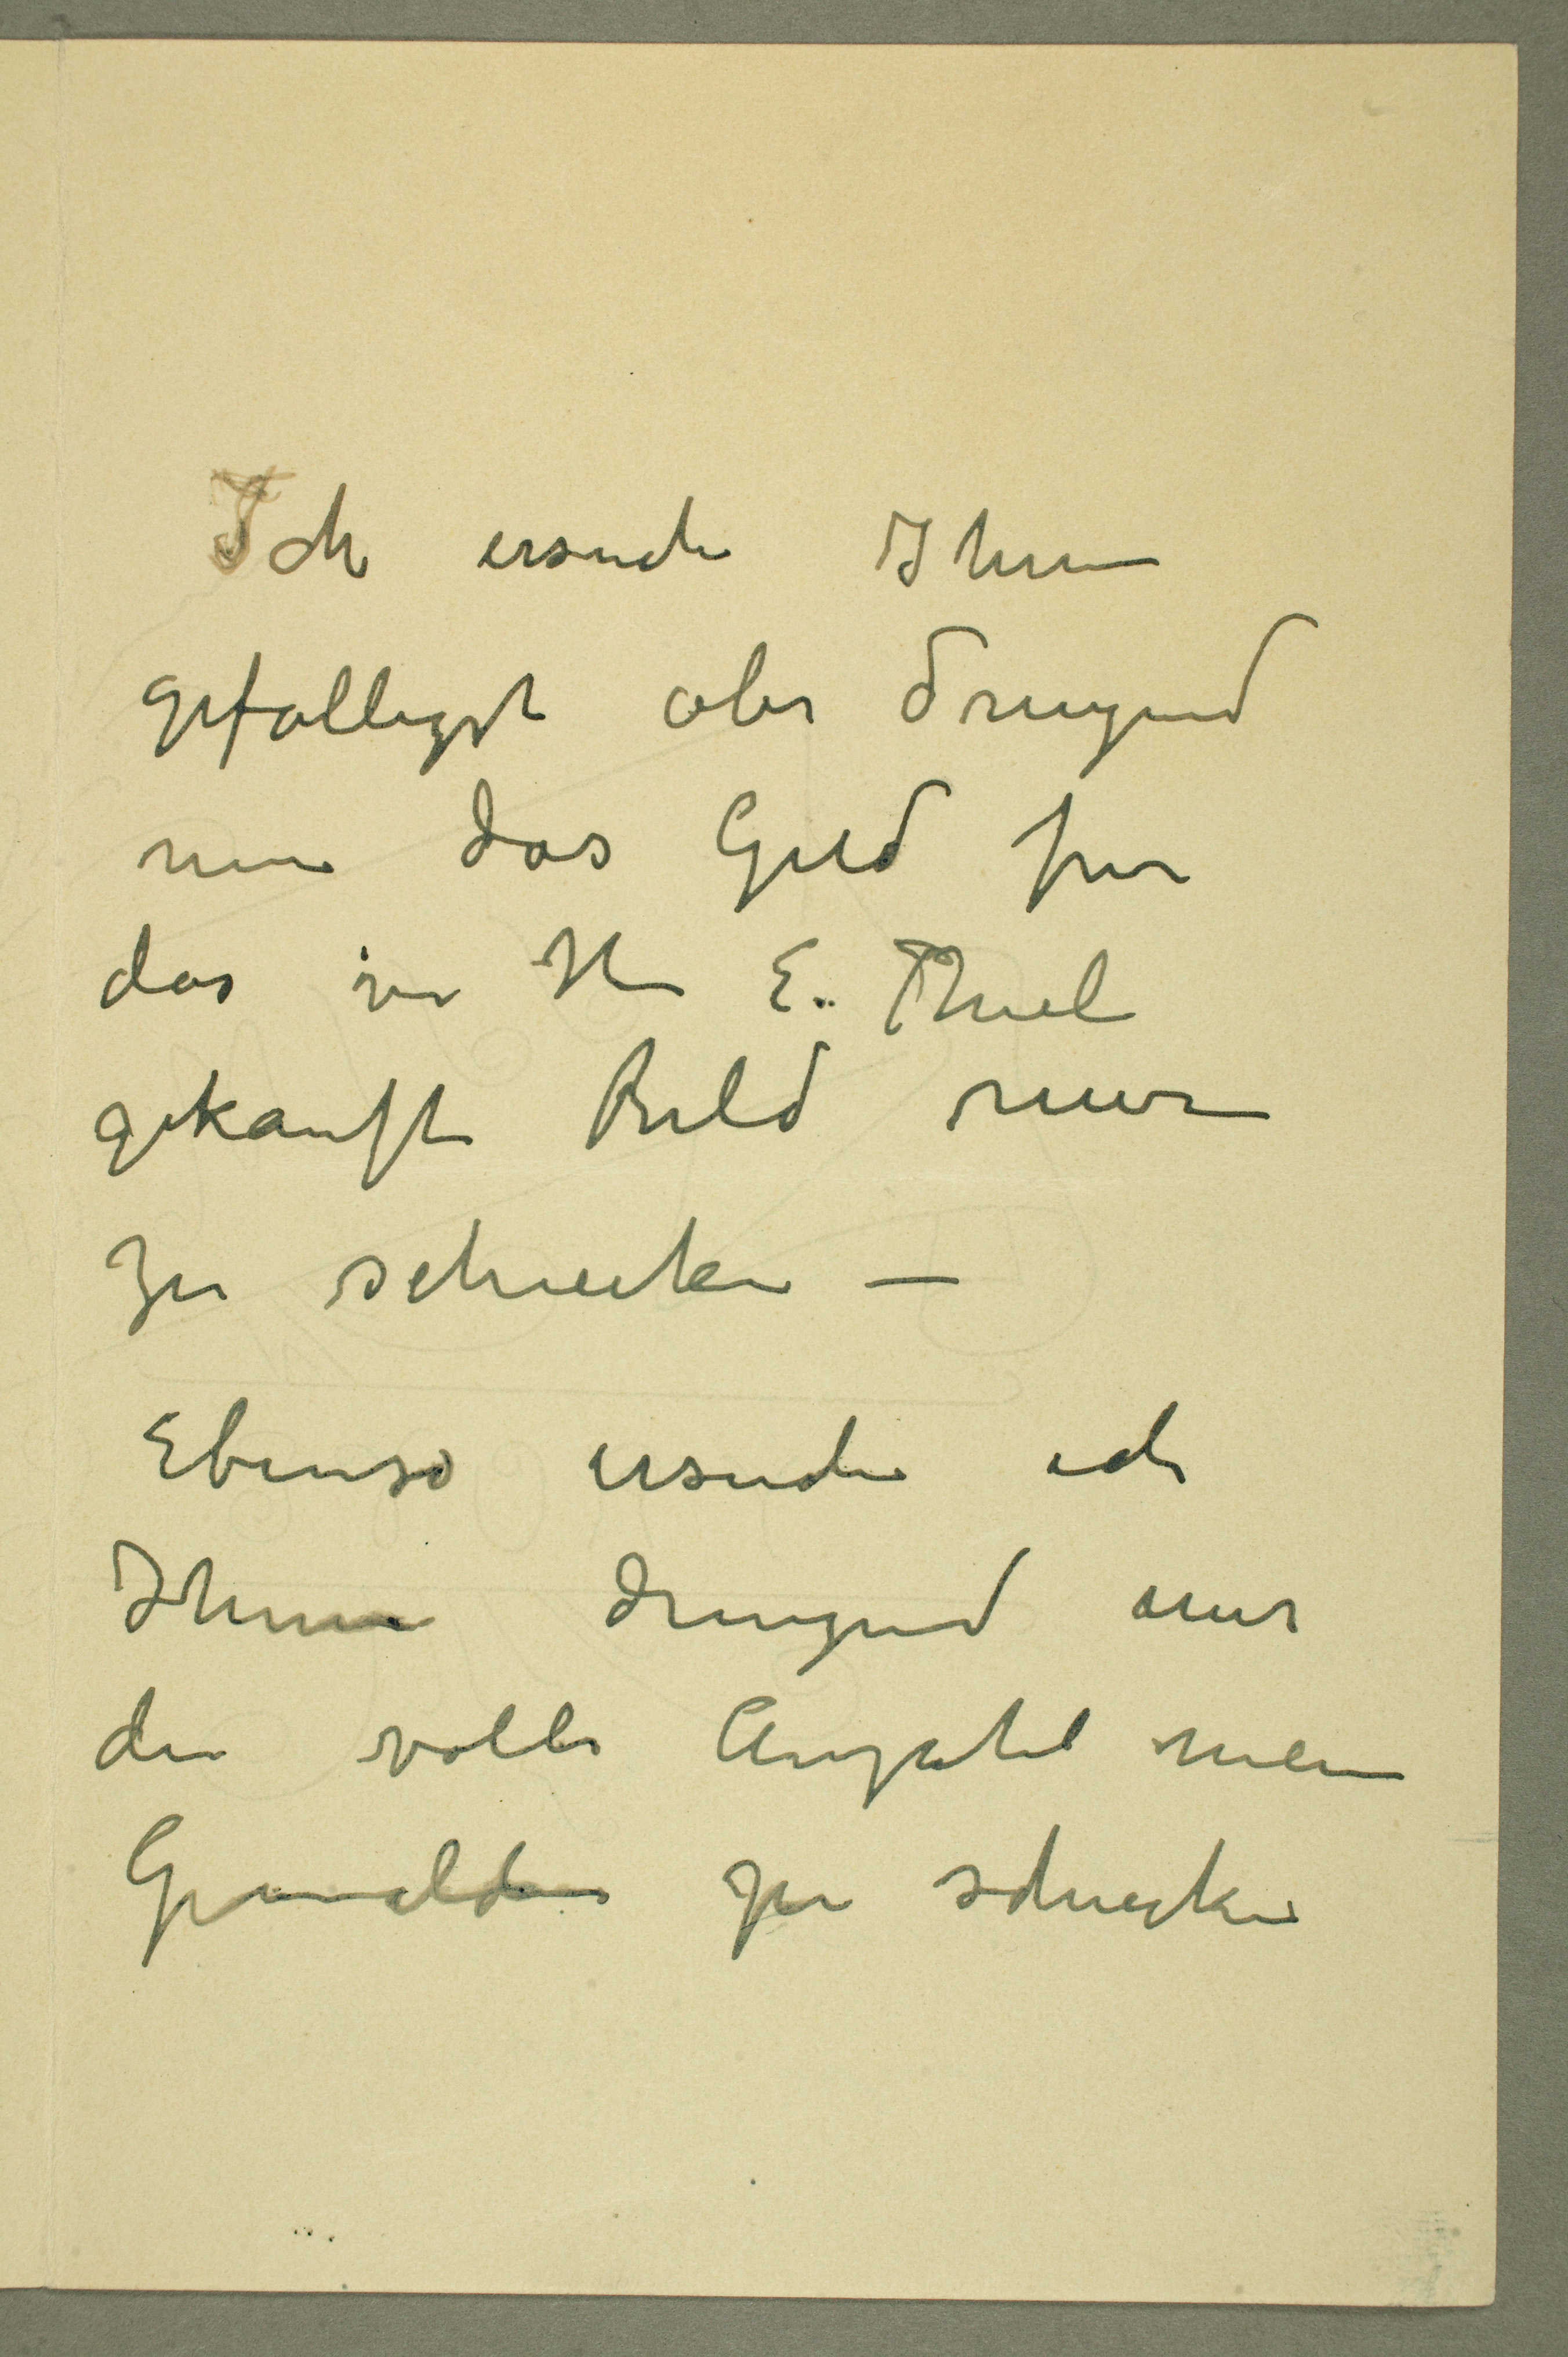 Ich ersuche Ihnen
gefälligst aber dringend
nun das Geld fur
das von Hn E. Thiel
gekaufte Bild
zu schicken —
Ebenso ersuche ich
Ihnen dringend um
die volle Anzahl meine
Gemälden zu schicken